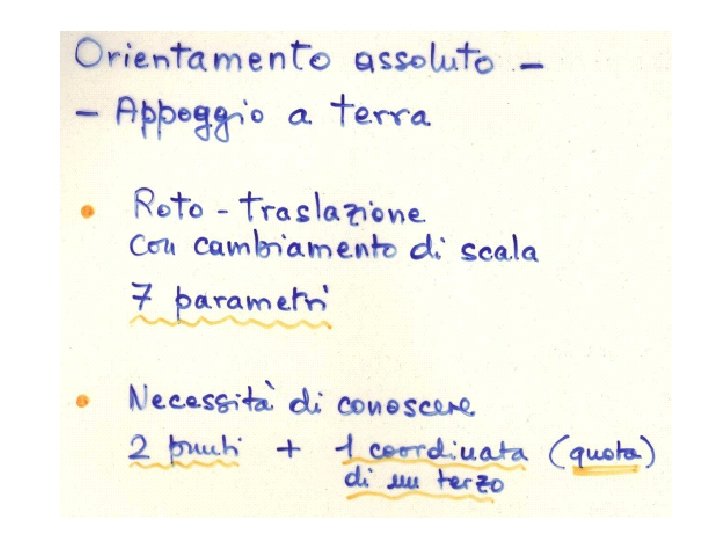 Orientamento assoluto -
- Appoggio a terra
• Roto-traslazione
con cambiamento di scala
7 parametri
• Necessità di conoscere
2 punti + 1 coordinata (quota)
di un terzo